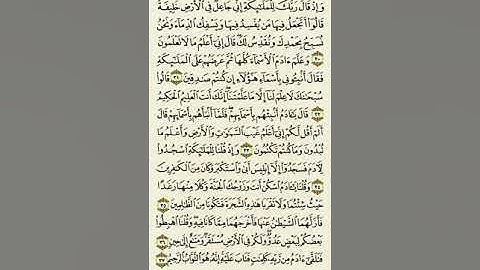 وَإِذْ قَالَ رَبُّكَ لِلْمَلَٰٓئِكَةِ إِنِّي جَاعِلٌ فِي ٱلْأَرْضِ خَلِيفَةً
قَالُوٓا۟ أَتَجْعَلُ فِيهَا مَن يُفْسِدُ فِيهَا وَيَسْفِكُ ٱلدِّمَآءَ وَنَحْنُ
نُسَبِّحُ بِحَمْدِكَ وَنُقَدِّسُ لَكَ قَالَ إِنِّيٓ أَعْلَمُ مَا لَا تَعْلَمُونَ
٣٠ وَعَلَّمَ ءَادَمَ ٱلْأَسْمَآءَ كُلَّهَا ثُمَّ عَرَضَهُمْ عَلَى ٱلْمَلَٰٓئِكَةِ
فَقَالَ أَنۢبِـُٔونِي بِأَسْمَآءِ هَٰٓؤُلَآءِ إِن كُنتُمْ صَٰدِقِينَ ٣١ قَالُوا۟
سُبْحَٰنَكَ لَا عِلْمَ لَنَآ إِلَّا مَا عَلَّمْتَنَآ إِنَّكَ أَنتَ ٱلْعَلِيمُ ٱلْحَكِيمُ
٣٢ قَالَ يَٰٓـَٔادَمُ أَنۢبِئْهُم بِأَسْمَآئِهِمْ فَلَمَّآ أَنۢبَأَهُم بِأَسْمَآئِهِمْ قَالَ
أَلَمْ أَقُل لَّكُمْ إِنِّيٓ أَعْلَمُ غَيْبَ ٱلسَّمَٰوَٰتِ وَٱلْأَرْضِ وَأَعْلَمُ مَا
تُبْدُونَ وَمَا كُنتُمْ تَكْتُمُونَ ٣٣ وَإِذْ قُلْنَا لِلْمَلَٰٓئِكَةِ ٱسْجُدُوا۟
لِـَٔادَمَ فَسَجَدُوٓا۟ إِلَّآ إِبْلِيسَ أَبَىٰ وَٱسْتَكْبَرَ وَكَانَ مِنَ ٱلْكَٰفِرِينَ
٣٤ وَقُلْنَا يَٰٓـَٔادَمُ ٱسْكُنْ أَنتَ وَزَوْجُكَ ٱلْجَنَّةَ وَكُلَا مِنْهَا رَغَدًا
حَيْثُ شِئْتُمَا وَلَا تَقْرَبَا هَٰذِهِ ٱلشَّجَرَةَ فَتَكُونَا مِنَ ٱلظَّٰلِمِينَ ٣٥
فَأَزَلَّهُمَا ٱلشَّيْطَٰنُ عَنْهَا فَأَخْرَجَهُمَا مِمَّا كَانَا فِيهِ وَقُلْنَا ٱهْبِطُوا۟
بَعْضُكُمْ لِبَعْضٍ عَدُوٌّ وَلَكُمْ فِي ٱلْأَرْضِ مُسْتَقَرٌّ وَمَتَٰعٌ إِلَىٰ حِينٍ ٣٦
فَتَلَقَّىٰٓ ءَادَمُ مِن رَّبِّهِ كَلِمَٰتٍ فَتَابَ عَلَيْهِ إِنَّهُ هُوَ ٱلتَّوَّابُ ٱلرَّحِيمُ ٣٧